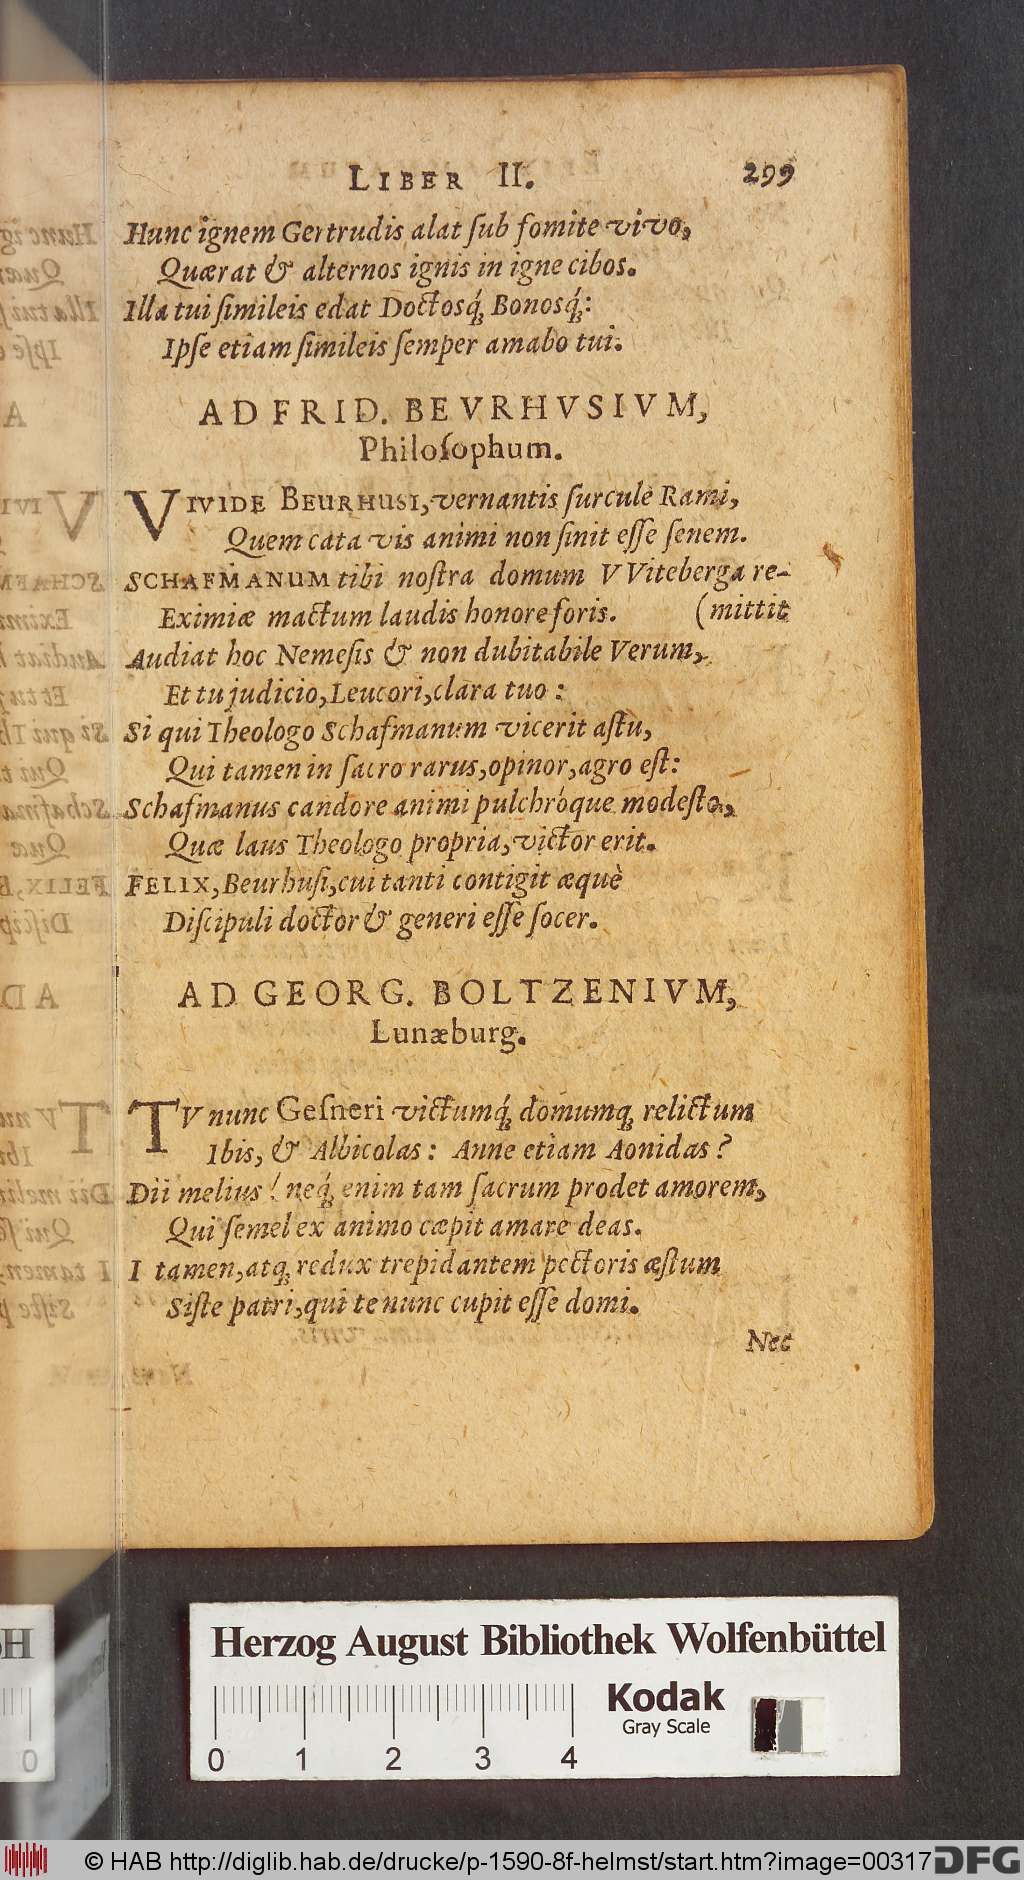 LIBER II. 299
Hunc ignem Gertrudis alat ſub fomite vivo,
Quærat & alternos ignis in igne cibos.
Illa tui ſimileis edat Doctosq́; Bonosq́;:
Ipſe etiam ſimileis ſemper amabo tui.
AD FRID. BEVRHVSIVM,
Philoſophum.
VIVIDE BEURHUSI, vernantis ſurcule Rami,
Quem cata vis animi non ſinit eſſe ſenem.
SCHAFMANUM tibi noſtra domum VViteberga re-
Eximiæ mactum laudis honore foris. (mittit
Audiat hoc Nemeſis & non dubitabile Verum,
Et tu judicio, Leucori, clara tuo:
Si qui Theologo Schafmanum vicerit aſtu,
Qui tamen in ſacro rarus, opinor, agro eſt:
Schafmanus candore animi pulchróque modeſto,
Quæ laus Theologo propria, victor erit.
FELIX, Beurhuſi, cui tanti contigit æquè
Diſcipuli doctor & generi eſſe ſocer.
AD GEORG. BOLTZENIVM,
Lunæburg.
TV nunc Geſneri victumq́; domumq; relictum
Ibis, & Albicolas: Anne etiam Aonidas?
Dii melius! neq́; enim tam ſacrum prodet amorem,
Qui ſemel ex animo cæpit amare deas.
I tamen, atq; redux trepidantem pectoris æſtum
Siſte patri, qui te nunc cupit eſſe domi.
Nec
Herzog August Bibliothek Wolfenbüttel
Kodak
Gray Scale
0 1 2 3 4
0
© HAB http://diglib.hab.de/drucke/p-1590-8f-helmst/start.htm?image=00317
DFG